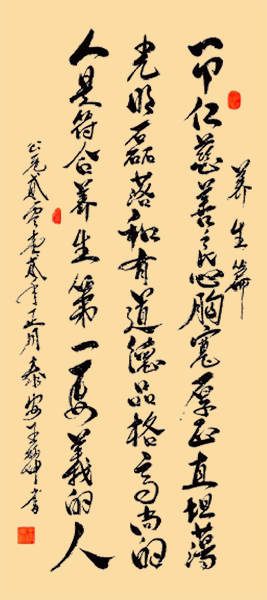 养生篇
一个仁慈善良心胸宽厚正直坦荡
光明磊落和有道德品格高尚的
人是符合养生第一要义的人
公元贰零壹贰年正月泰安王书